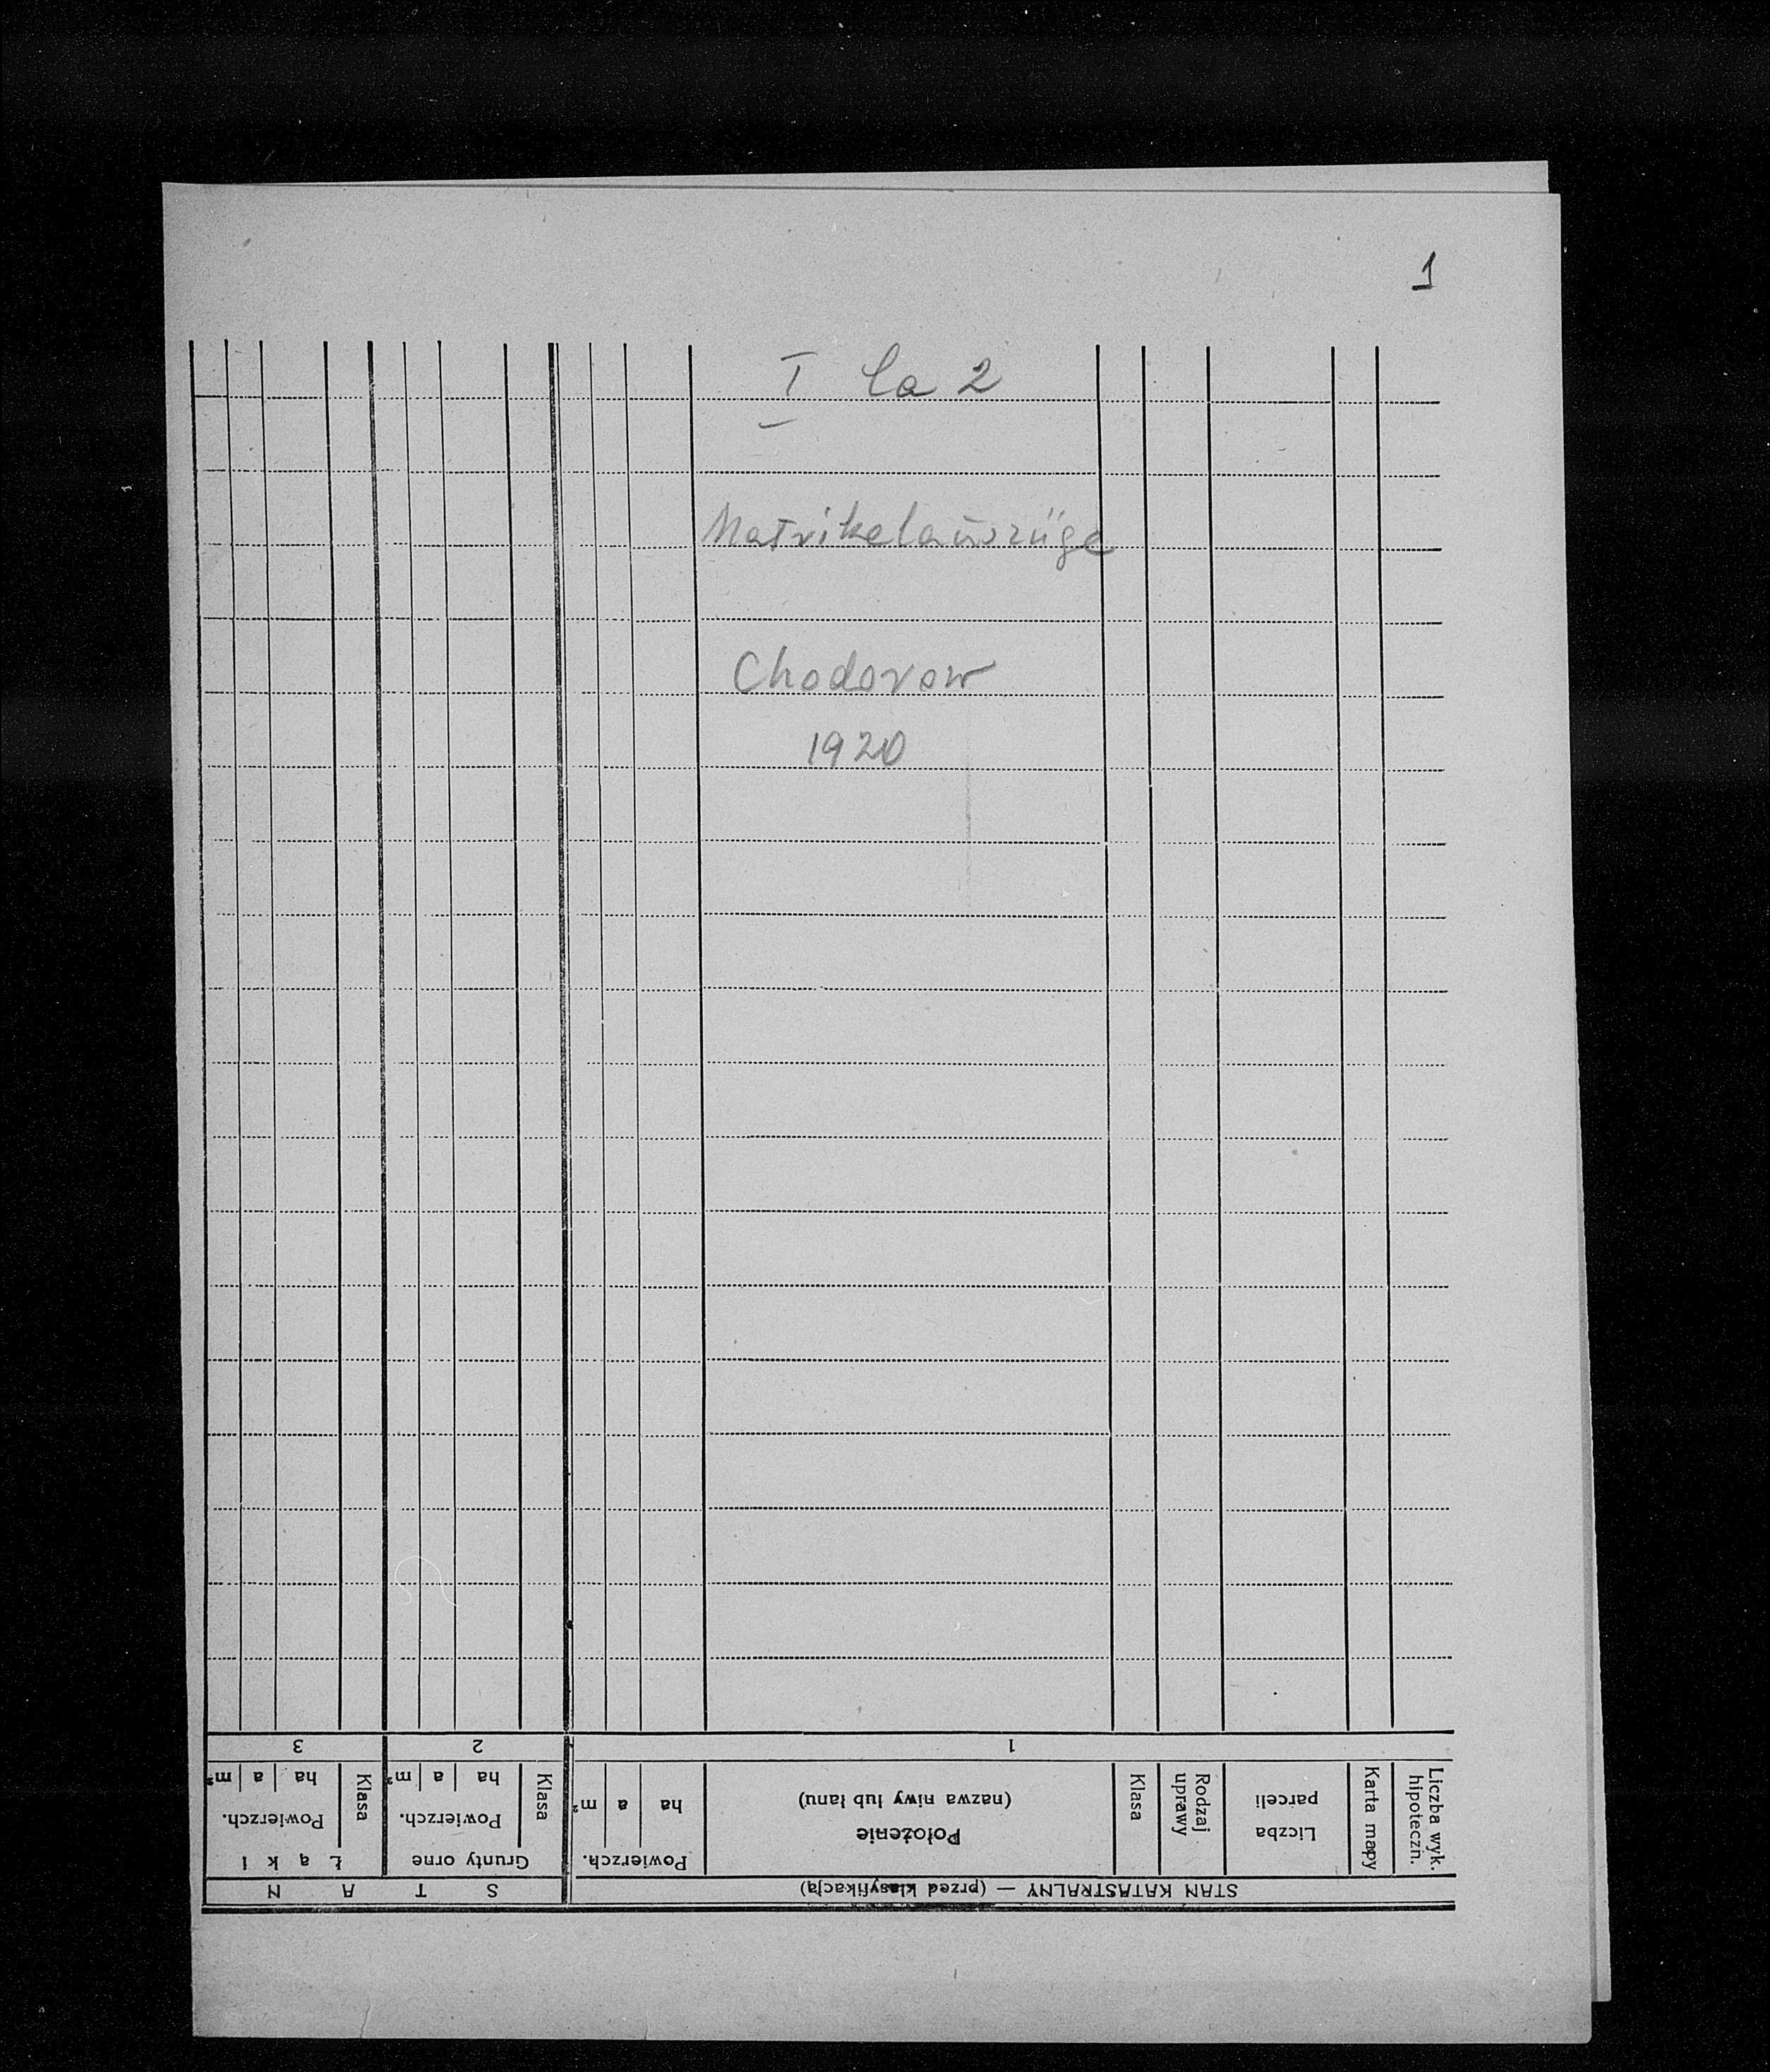 1
I la 2
Matrikelauszüge
Chodorow
1920
STAN KATASTRALNY — (przed klasyfikacją)
S T A N
Liczba wyk. hipoteczn.
Karta mapy
Liczba parceli
Rodzaj uprawy
Klasa
Położenie
(nazwa niwy lub łanu)
Powierzch.
ha a m²
Grunty orne
Klasa
Powierzch.
ha a m²
Łąki
Klasa
Powierzch.
ha a m²
1 2 3